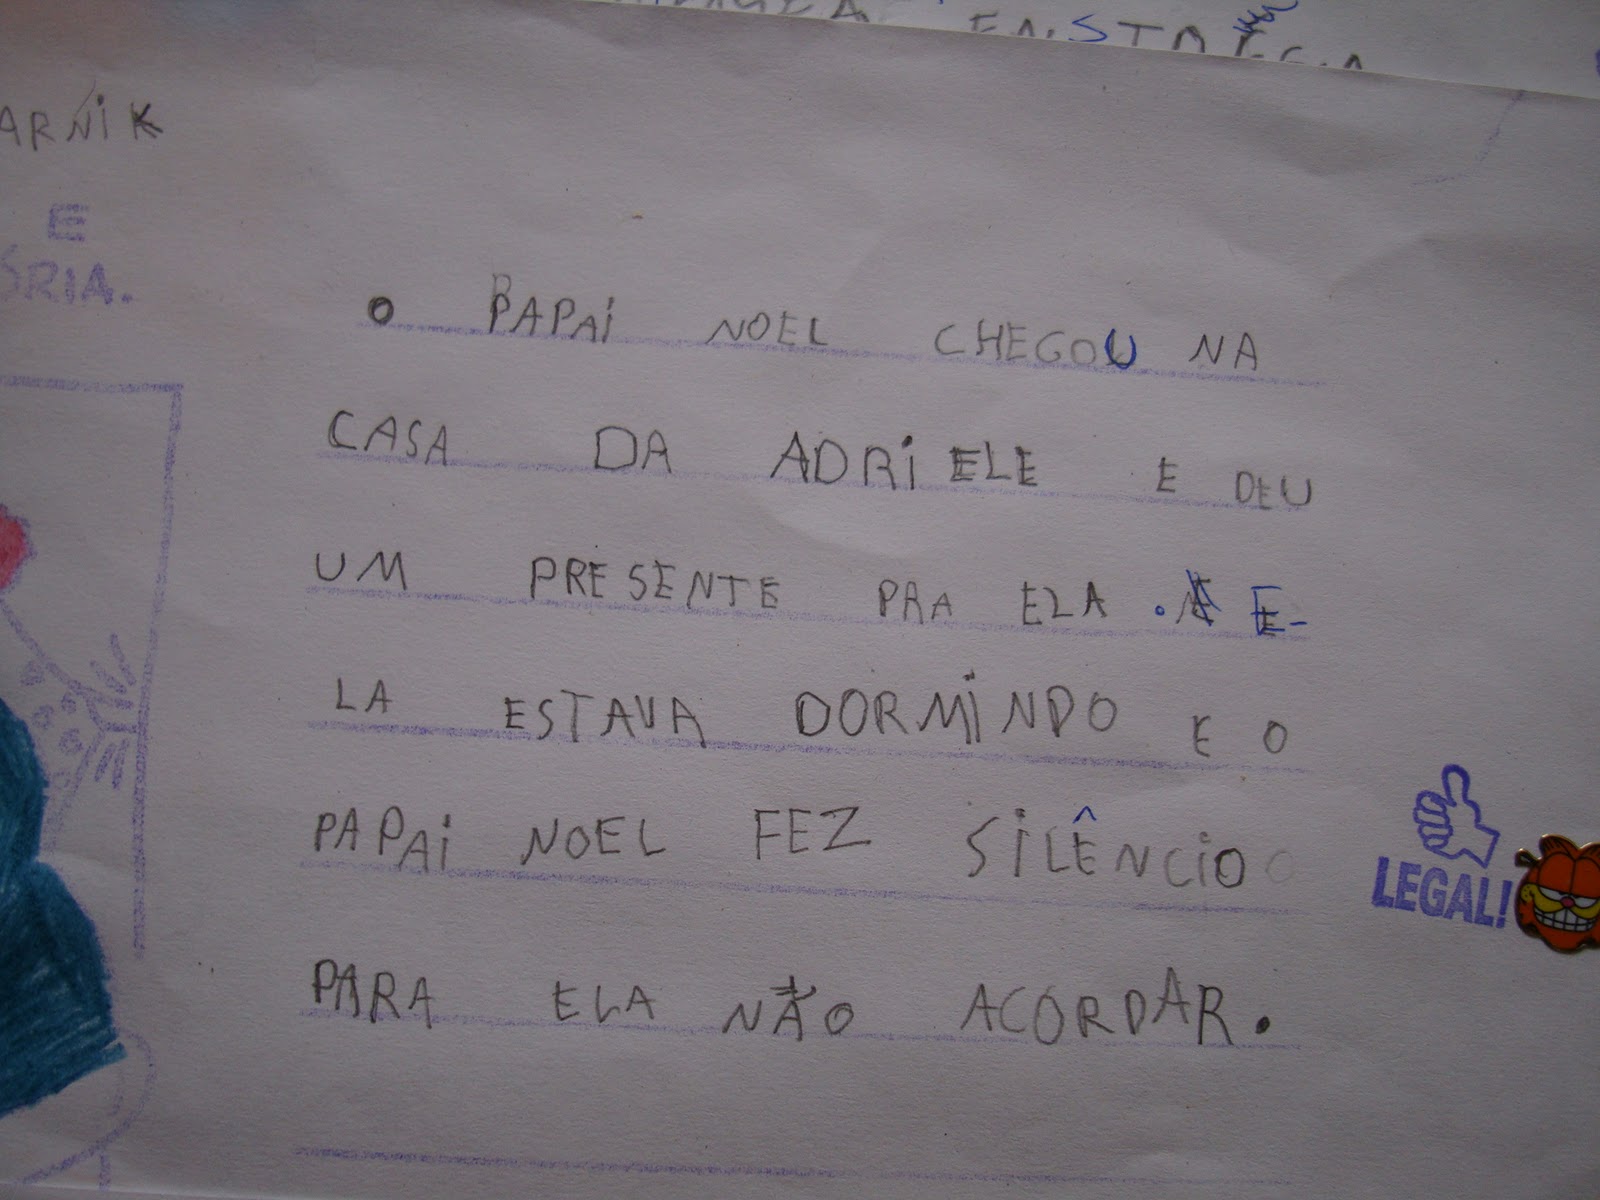 ARNIK
E
ÓRIA.
O PAPAI NOEL CHEGOU NA
CASA DA ADRIELE E DEU
UM PRESENTE PRA ELA . E-
LA ESTAVA DORMINDO E O
PAPAI NOEL FEZ SILÊNCIO
PARA ELA NÃO ACORDAR.
LEGAL!